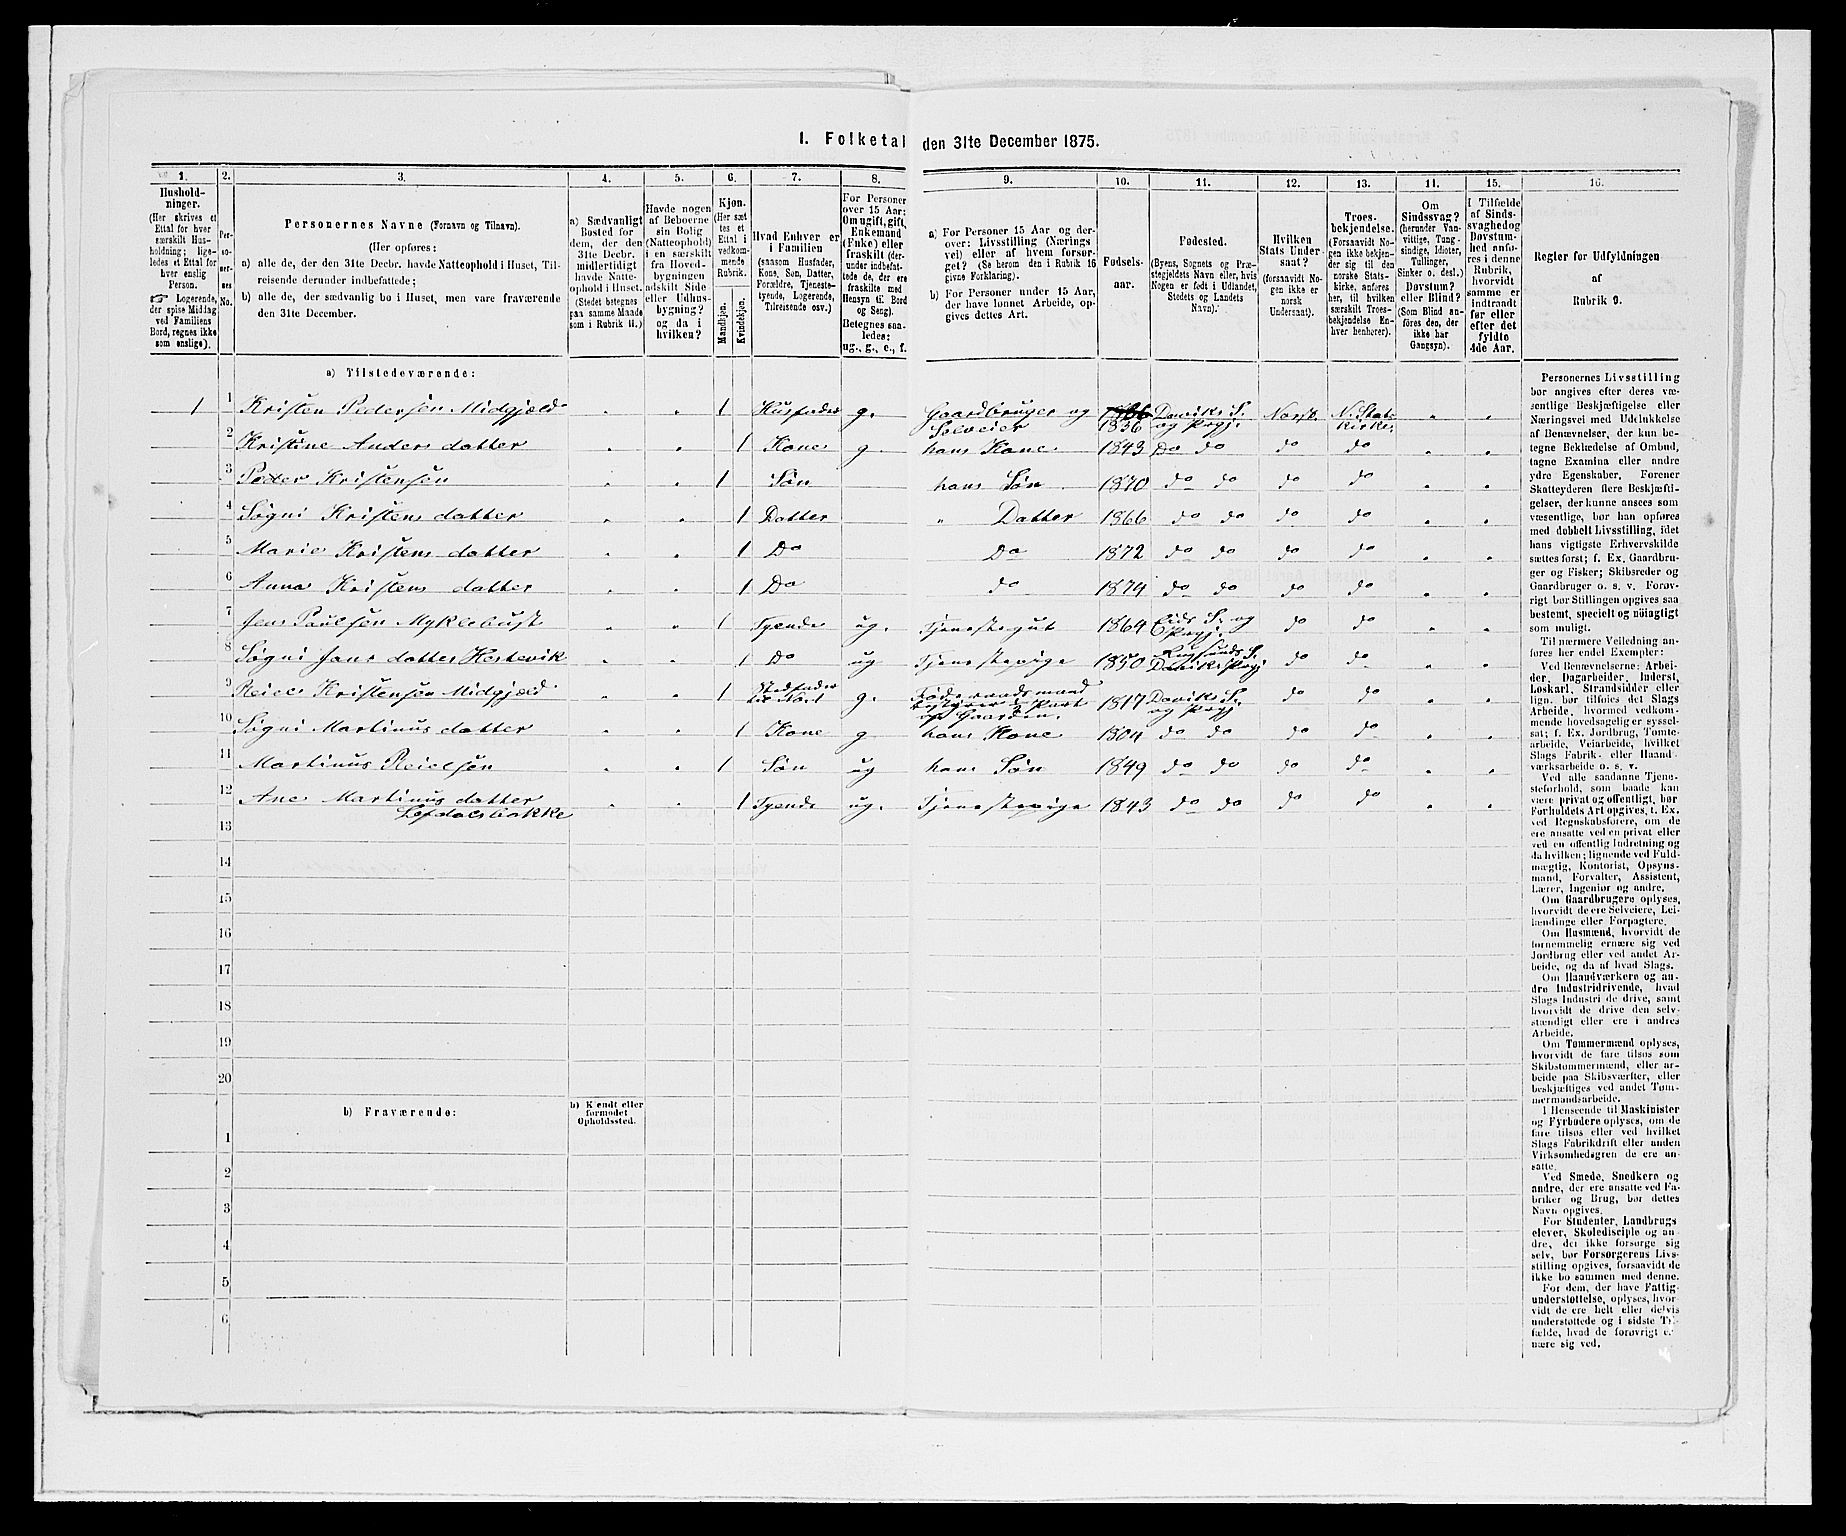 1. Folketal den 31te December 1875.
1. 2. 3. 4. 5. 6. 7. 8. 9. 10. 11. 12. 13. 14. 15. 16.
Hushold-
ninger.
(Her skrives et
Ettal for hver
særskilt Hus-
holdning; lige-
ledes et Ettal for
hver enslig
Person.
☞ Logerende,
der spise Middag
ved Familiens
Bord, regnes ikke
som enslige).
Per-
so-
ner-
nes
No.
Personernes Navne (Fornavn og Tilnavn).
(Her opføres:
a) alle de, der den 31te Decbr. havde Natteophold i Huset, Til-
reisende derunder indbefattede;
b) alle de, der sædvanlig bo i Huset, men vare fraværende
den 31te December.
a) Sædvanligt
Bosted for
dem, der den
31te Decbr.
midlertidigt
havde Natte-
ophold i Huset.
(Stedet betegnes
paa samme Maade
som i Rubrik 11.)
Havde nogen
af Beboerne
sin Bolig
(Natteophold)
i en særskilt
fra Hoved-
bygningen
adskilt Side
eller Udhus-
bygning?
og da i
hvilken?
Kjøn.
(Her sæt-
tes et
Ettal i
vedkom-
mende
Rubrik.
Mandkjøn.
Kvindekjøn.
Hvad Enhver er
i Familien
(saasom Husfader,
Kone, Søn, Datter,
Forældre, Tjeneste-
tyende, Logerende,
Tilreisende osv.)
For Personer
over 15 Aar:
Om ugift, gift,
Enkemand
(Enke) eller
fraskilt (der-
under indbefat-
tede de, der ere
fraskilte med
Hensyn til Bord
og Seng).
Betegnes saa-
ledes:
ug., g., e., f.
a) For Personer 15 Aar og der-
over: Livsstilling (Nærings
vei) eller af hvem forsør-
get? (Se herom den i Rubrik 16
givne Forklaring).
b) For Personer under 15 Aar,
der have lønnet Arbeide, op-
gives dettes Art.
Fødsels-
aar.
Fødested.
(Byens, Sognets og Præ-
stegjeldets Navn eller, hvis
Nogen er født i Udlandet,
Stedets og Landets
Navn).
Hvilken
Stats Under-
saat?
(forsaavidt No-
gen ikke er
norsk
Undersaat).
Troes-
bekjendelse.
(Forsaavidt No-
gen ikke bekjen-
der sig til den
norske Stats-
kirke, anføres
her, til hvilken
særskilt Troes-
bekjendelse En-
hver henhører).
Om
Sindssvag?
(herunder Van-
vittige, Tung-
sindige, Idioter,
Tullinger,
Sinker o. desl.)
Døvstum?
eller Blind?
(Som Blind an-
føres den, der
ikke har
Gangsyn).
I Tilfælde
af Sinds-
svaghed og
Døvstum-
hed anfø-
res i denne
Rubrik,
hvorvidt
samme er
indtraadt
før eller
efter det
fyldte
4de Aar.
Regler for Udfyldningen
af
Rubrik 9.
a) Tilstedeværende:
1 1 Kristen Pedersen Midgjæld „ „ 1 Husfader g. Gaardbruger og Selveier 1836 Daviks S. og Prgj. Norsk N. Stats Kirke „ „
2 Kristine Anders datter „ „ 1 Kone g. hans Kone 1843 Do do do do „ „
3 Peder Kristensen „ „ 1 Søn hans Søn 1870 do do do do „ „
4 Søgni Kristens datter „ „ 1 Datter „ Datter 1866 do do do do „ „
5 Marie Kristens datter „ „ 1 Do Do 1872 do do do do „ „
6 Anna Kristens datter „ „ 1 Do do 1874 do do do do „ „
7 Jens Paulsen Myklebust „ „ 1 Tyende ug. Tjenestegut 1864 Eids S. og Prgj. do do „ „
8 Søgni Jans datter Hestevik „ „ 1 Do ug Tjenestepige 1850 Rugsunds S. Daviks Prgj do do „ „
9 Reiel Kristensen Midgjæld „ „ 1 g. Føderaadsmand af Gaarden. 1817 Daviks S. og Prgj. do do „ „
10 Søgni Martinus datter „ „ 1 Kone g hans Kone 1804 do do do do „ „
11 Martinus Reielsen „ „ 1 Søn ug hans Søn 1849 do do do do „ „
12 Ane Martinus datter „ „ 1 Tyende ug. Tjenestepige 1843 do do do do „ „
Lefdalsbakke
13
14
15
16
17
18
19
20
b) Fraværende:
b) Kjendt eller
formodet
Opholdssted.
1
2
3
4
5
6
Personernes Livsstilling
bør angives efter deres væ-
sentlige Beskjæftigelse eller
Næringsvei med Udelukkelse
af Benævnelser, der kun be-
tegne Beklædelse af Ombud,
tagne Examina eller andre
ydre Egenskaber. Forener
Skatteyderen flere Beskjæfti-
gelser, der kunne ansees som
væsentlige, bør han opføres
med dobbelt Livsstilling, idet
hans vigtigste Erhvervskilde
sættes først; f. Ex. Gaardbru-
ger og Fisker; Skibsreder og
Gaardbruger o. s. v. Forøv-
rigt bør Stillingen opgives saa
bestemt, specielt og nøiagtigt
som muligt.
Til nærmere Veiledning an-
føres her endel Exempler:
Ved Benævnelserne: Arbei-
der, Dagarbeider, Inderst,
Løskarl, Strandsidder eller
lign. bør tilføies det Slags
Arbeide, hvormed vedkom-
mende hovedsagelig er syssel-
sat; f. Ex. Jordbrug, Tømte-
arbeide, Veiarbeide, hvilket
Slags Fabrik- eller Haand-
værksarbeide o. s. v.
Ved alle saadanne Tjene-
steforhold, som baade kan
være privat og offentlig, bør
Forholdets Art opgives, t. Ex.
ved Regnskabsførere, om de
ere ansatte ved en privat eller
ved en offentlig Indretning og
da hvilken; lignende ved Fuld-
mægtig, Kontorist, Opsyns-
mand, Forvalter, Assistent,
Lærer, Ingeniør og andre.
Om Gaardbrugere oplyses,
hvorvidt de ere Selveiere, Lei-
lændinge eller Forpagtere.
Om Husmænd, hvorvidt de
fornemmelig ernære sig ved
Jordbrug eller ved andet Ar-
beide, og da af hvad Slags.
Om Haandværkere og an-
dre Industridrivende, hvad
Slags Industri de drive, samt
hvorvidt de drive den selv-
stændigt eller ere i andres
Arbeide.
Om Tømmermænd oplyses,
hvorvidt de fare tilsøs som
Skibstømmermænd, eller ar-
beide paa Skibsværfter, eller
beskjæftiges ved andet Tøm-
mermandsarbeide.
I Henseende til Maskinister
og Fyrbødere oplyses, om de
fare tilsøs eller ved hvilket
Slags Fabrikdrift eller anden
Virksomhedsgren de ere an-
satte.
Ved Smede, Snedkere og
andre, der ere ansatte ved Fa-
briker og Brug, bør dettes
Navn opgives.
For Studenter, Landbrugs
elever, Skoledisciple og an-
dre, der ikke forsørge sig
selv, bør Forsørgerens Livs-
stilling opgives, forsaavidt de
ikke bo sammen med denne.
For dem, der have Fattig-
understøttelse, oplyses, hvor-
vidt de ere helt eller delvis
understøttede og i sidste Til-
fælde, hvad de forøvrigt er-
nære sig ved.